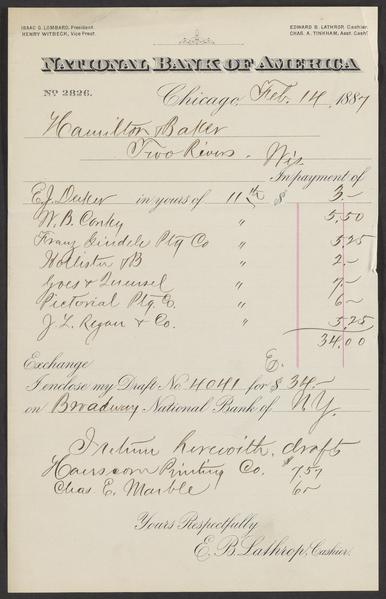 ISAAC G. LOMBARD, President.
HENRY WITBECK, Vice Prest.
EDWARD B. LATHROP, Cashier.
CHAS. A. TINKHAM, Asst. Cash!
NATIONAL BANK OF AMERICA
No 2826.
Chicago, Feb. 14, 1887
Hamilton & Baker
Two Rivers, Wis.
In payment of
E.J. Decker in yours of 11th $ 3-
W. B. Conky " 5.50
Franz Gindele Ptg Co " 5.25
Hollister & B " 2-
Goes & Quensel " 7-
Pictorial Ptg Co. " 6-
J. L. Regan & Co. " 5.25
34.00
Exchange E.
I enclose my Draft No 4041 for $34.-
on Broadway National Bank of N.Y.
I return herewith, drafts
Printing Co. $7.57
Chas. E. Marble 6-
Yours Respectfully
E. B. Lathrop, Cashier.